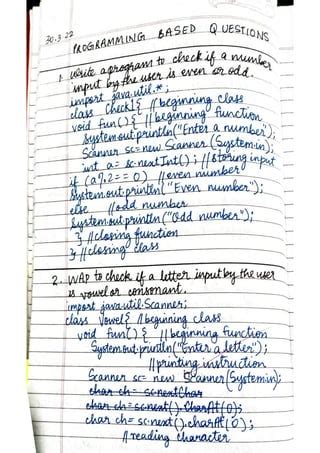 30.3.22
PROGRAMMING BASED QUESTIONS
1. Write a program to check if a number
input by the user is even or odd.
import java.util.*;
class Check1{ //beginning class
void fun(){ //beginning function
System.out.println("Enter a number");
Scanner sc=new Scanner (System.in);
int a= sc.nextInt(); //storing input
if (a%2==0) //even number
System.out.println("Even number");
else //odd number
System.out.println("Odd number");
} //closing function
} //closing class
2. WAP to check if a letter input by the user
is vowel or consonant.
import java.util.Scanner;
class Vowel{ //beginning class
void fun(){ //beginning function
System.out.println("Enter a letter");
//printing instruction
Scanner sc= new Scanner(System.in);
char ch= sc.nextChar
char ch= sc.next().CharAt(0);
char ch= sc.next().charAt(0);
//reading character